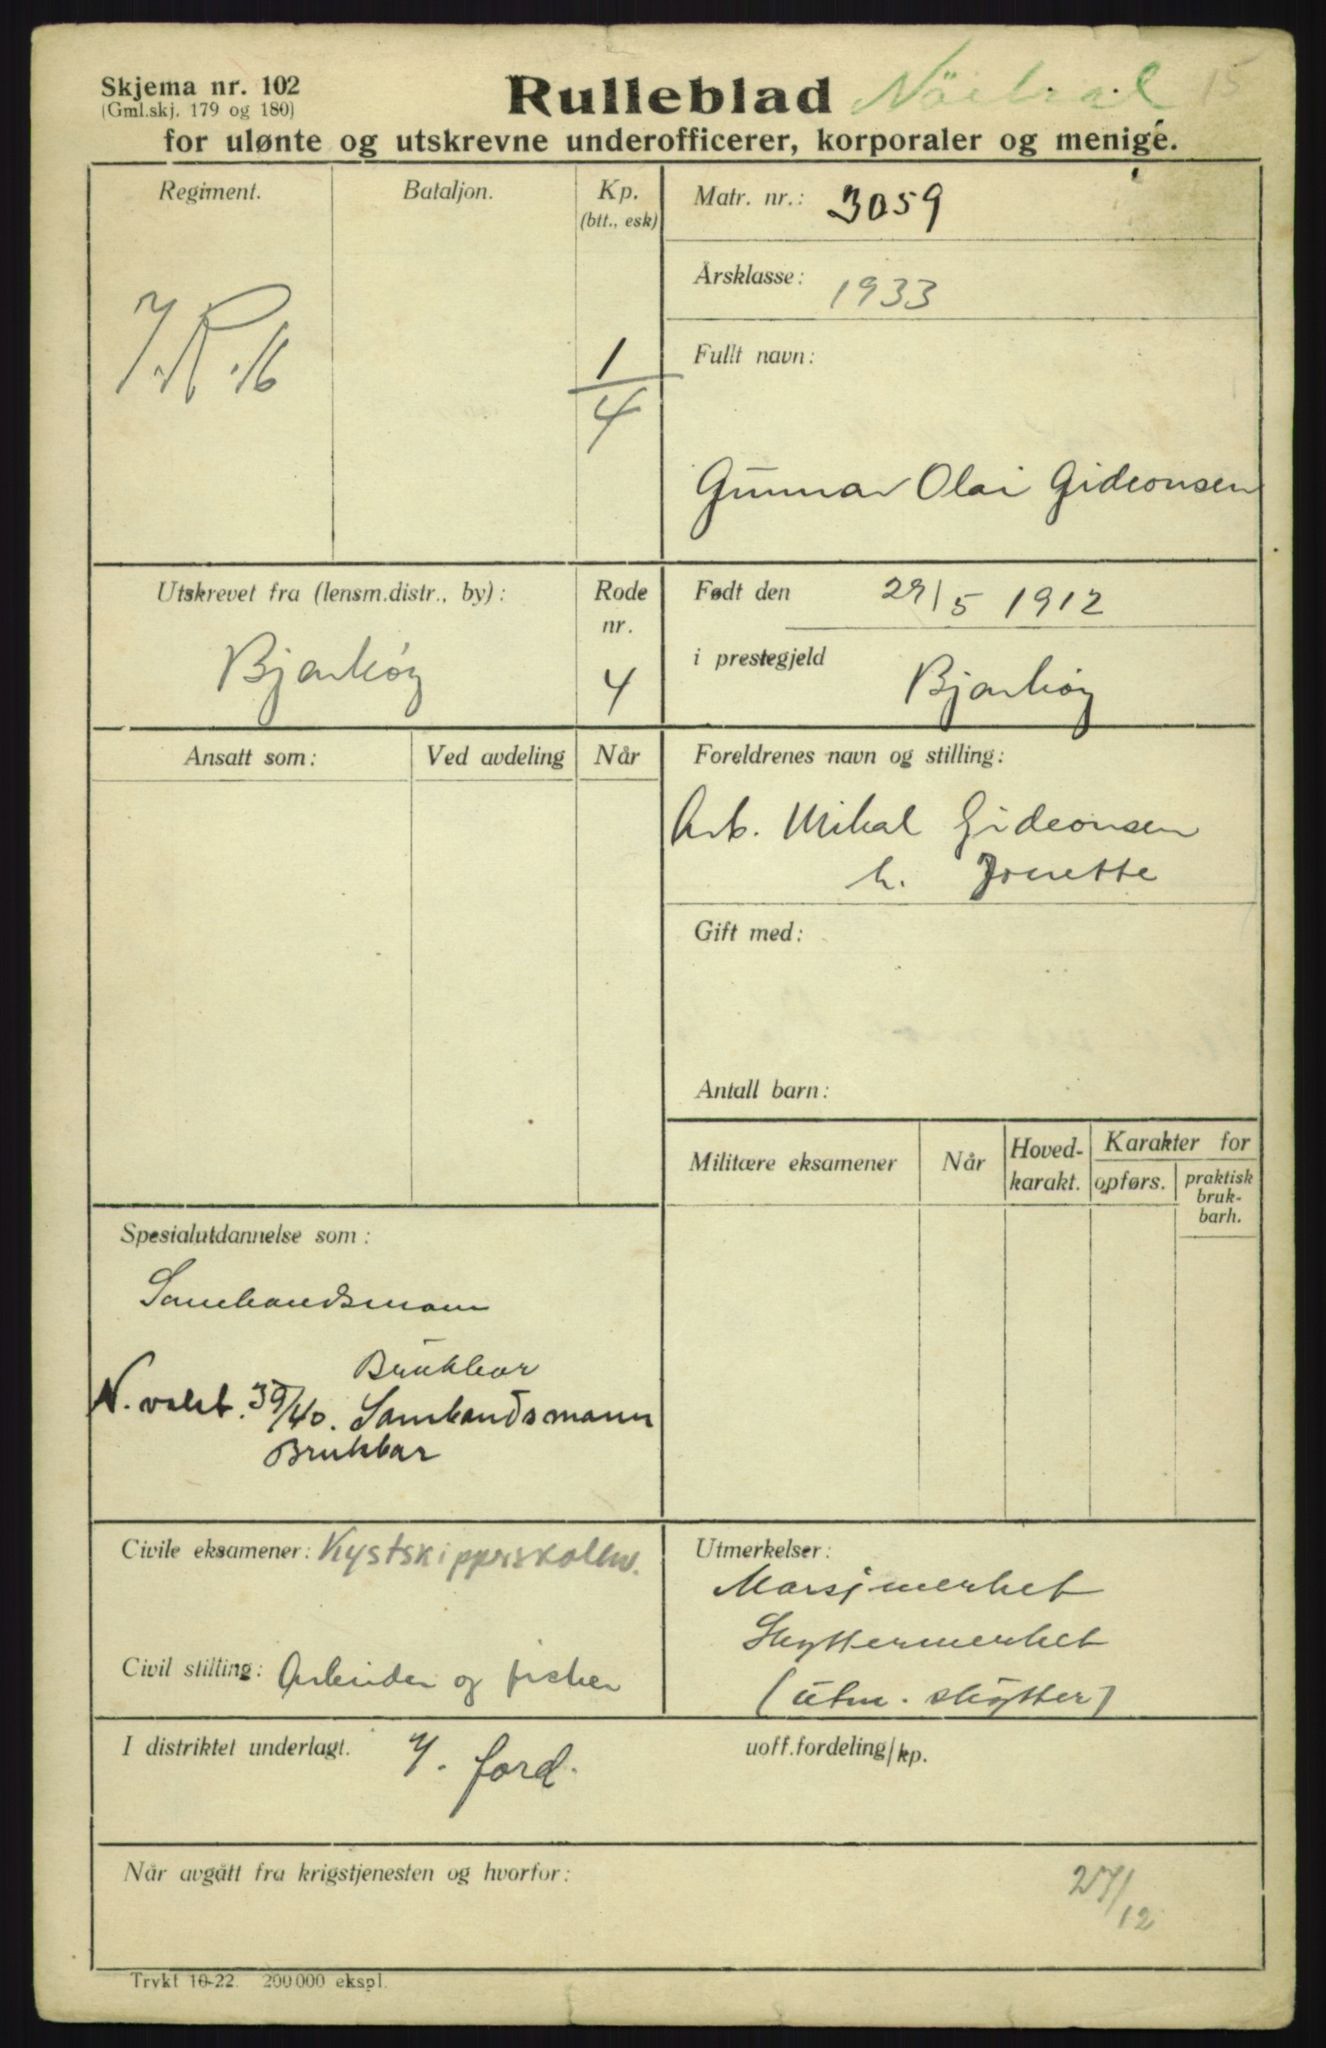 Skjema nr. 102
(Gml.skj. 179 og 180)
Rulleblad
15
for ulønte og utskrevne underofficerer, korporaler og menige.
Regiment.
Bataljon.
Kp.
(btt., esk)
I.R. 16
1/4
Matr. nr.: 3059
Årsklasse: 1933
Fullt navn:
Gunnar Olai Gideonsen
Utskrevet fra (lensm.distr., by):
Bjarkøy
Rode nr.
4
Født den 29/5 1912
i prestegjeld Bjarkøy
Ansatt som:
Ved avdeling
Når
Foreldrenes navn og stilling:
Arb. Mikal Gideonsen
h. Jonette
Gift med:
Antall barn:
Militære eksamener
Når
Hoved-
karakt.
Karakter for
opførs.
praktisk
bruk-
barh.
Spesialutdannelse som:
Sambandsmann
Brukbar
N. vakt. 39/40. Sambandsmann
Brukbar
Civile eksamener: Kystskipperskolen.
Civil stilling: Arbeider og fisker
Utmerkelser:
Marsjmerket
Skyttermerket
(utm. skytter)
I distriktet underlagt.
uoff.fordeling/kp.
ford.
Når avgått fra krigstjenesten og hvorfor:
27/12
Trykt 10-22. 200 000 ekspl.